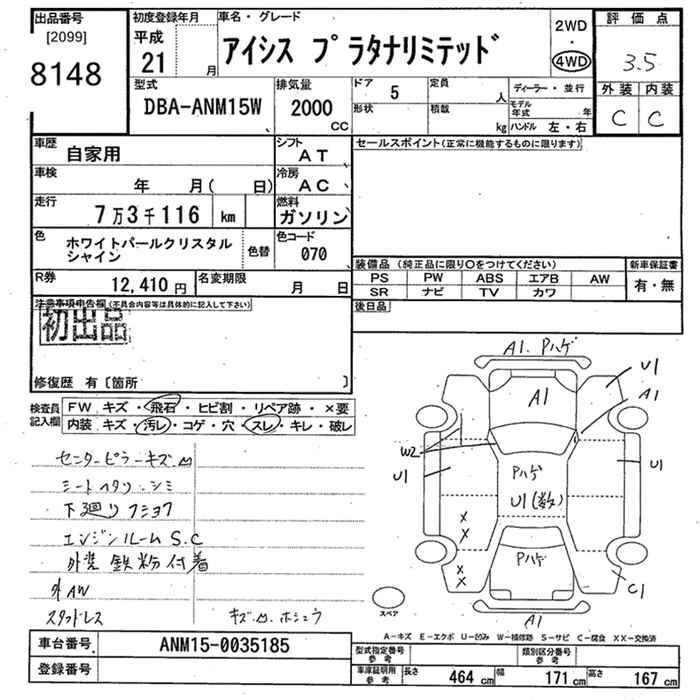 出品番号
[2099]
8148
初度登録年月
平成
21 月
車名・グレード
アイシス プラタナリミテッド
2WD
・
4WD
評価点
3.5
外装 内装
C C
型式
DBA-ANM15W
排気量
2000
CC
ドア 5
形状
定員 人
積載 kg
ディーラー・並行
モデル年式 年
ハンドル 左・右
車歴 自家用
シフト AT
セールスポイント(正常に機能するものに限ります)
車検 年 月( 日)
冷房 AC
走行 7万3千116 km
燃料 ガソリン
色 ホワイトパールクリスタル
シャイン
色替
色コード
070
装備品 (純正品に限り○をつけてください)
新車保証書
PS PW ABS エアB AW
SR ナビ TV カワ
有・無
R券 12,410 円
名変期限 月 日
後日品
注意事項申告欄(不具合内容等は具体的に記入して下さい)
初出品
修復歴 有〔箇所 〕
検査員
記入欄
FW キズ・飛石・ヒビ割・リペア跡・×要
内装 キズ・汚レ・コゲ・穴・スレ・キレ・破レ
センターピラーキズ凹
シートヘタリ・シミ
下廻りフショク
エンジンルームS.C
外装鉄粉付着
外AW
スタッドレス
キズ凹ホシュウ
A1.Pハゲ
U1
A1
A1
W2
U1
Pハゲ
U1(数)
U1
X
X
X
X
Pハゲ
C1
A1
スペア
A-キズ E-エクボ U-凹み W-補修跡 S-サビ C-腐食 XX-交換済
車台番号 ANM15-0035185
登録番号
型式指定番号
参考
類別区分番号
参考
車庫証明用
参考
長さ 464 cm 幅 171 cm 高さ 167 cm